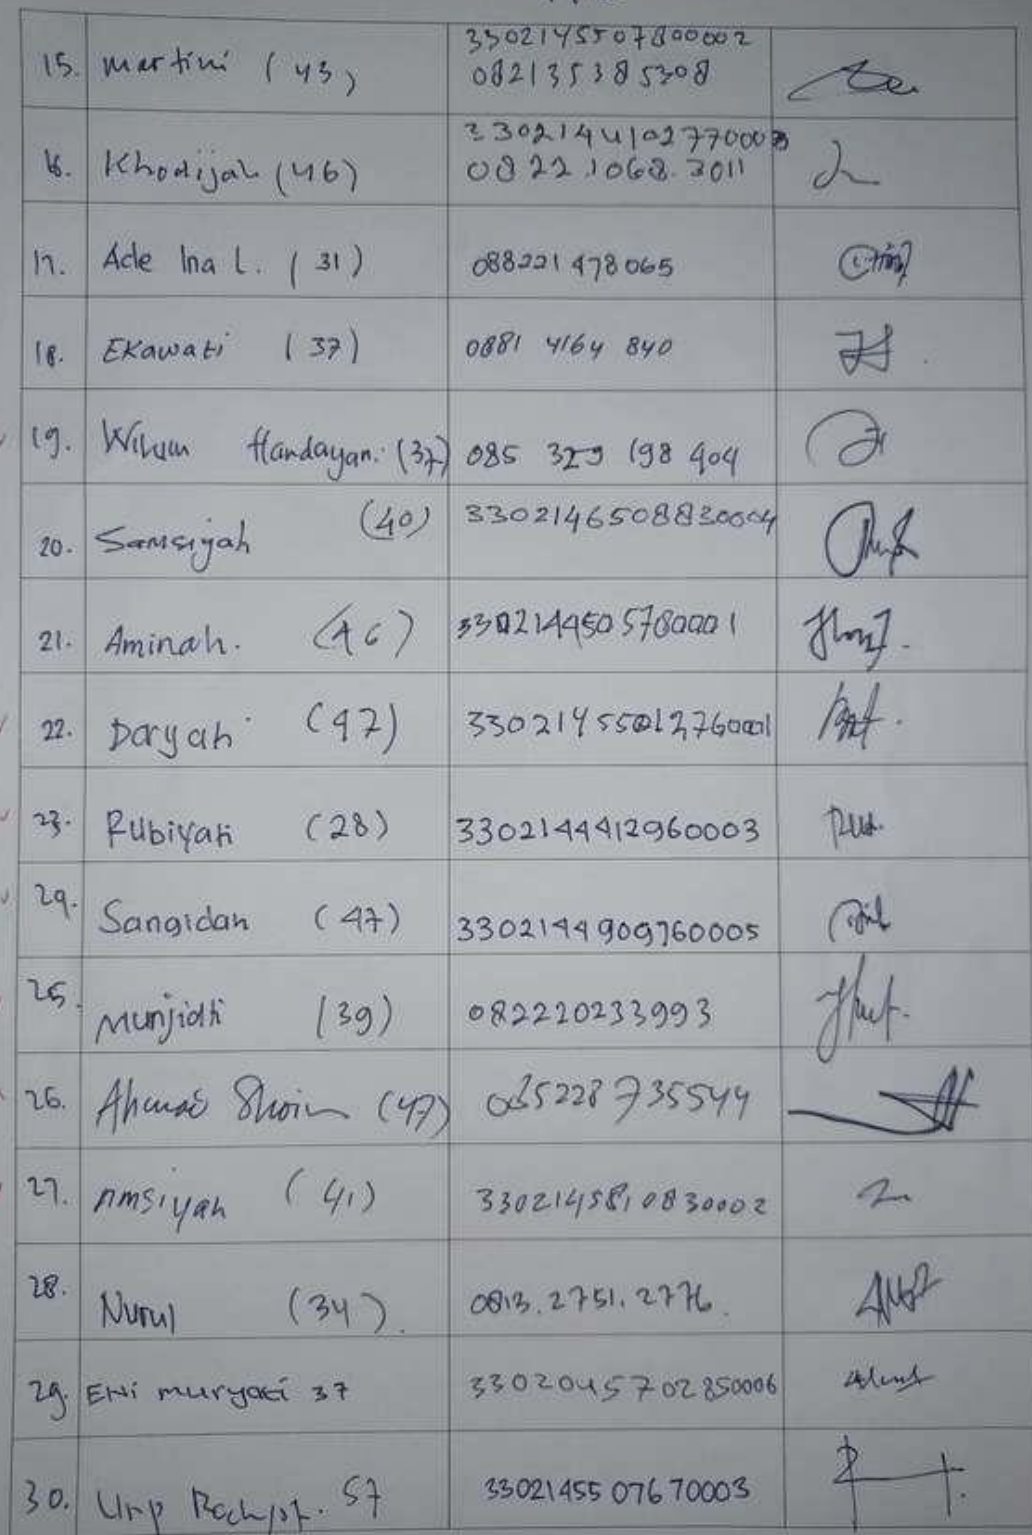 3302145507800002
15. Martini (43) 082135385308
3302144102770003
16. Khodijah (46) 0822.1068.3011
17. Ade Ina L. (31) 088221478065
18. Ekawati (37) 0881 4164 840
19. Handayani (37) 085 329 198 404
20. Samsiyah (40) 3302146508830004
21. Aminah. (46) 3302144505780001
22. Daryah (47)
23. Rubiyati (28) 3302144412960003
24. Sangidah (47) 3302144909760005
25. Munjidti (39) 082220233993
26. Ahmad Shoim (47) 085228735544
27. Amsiyah (41) 3302145810830002
28. Nurul (34). 0813.2751.2776.
29. Eni muryati 37 3302045702850006
30. 57 3302145507670003